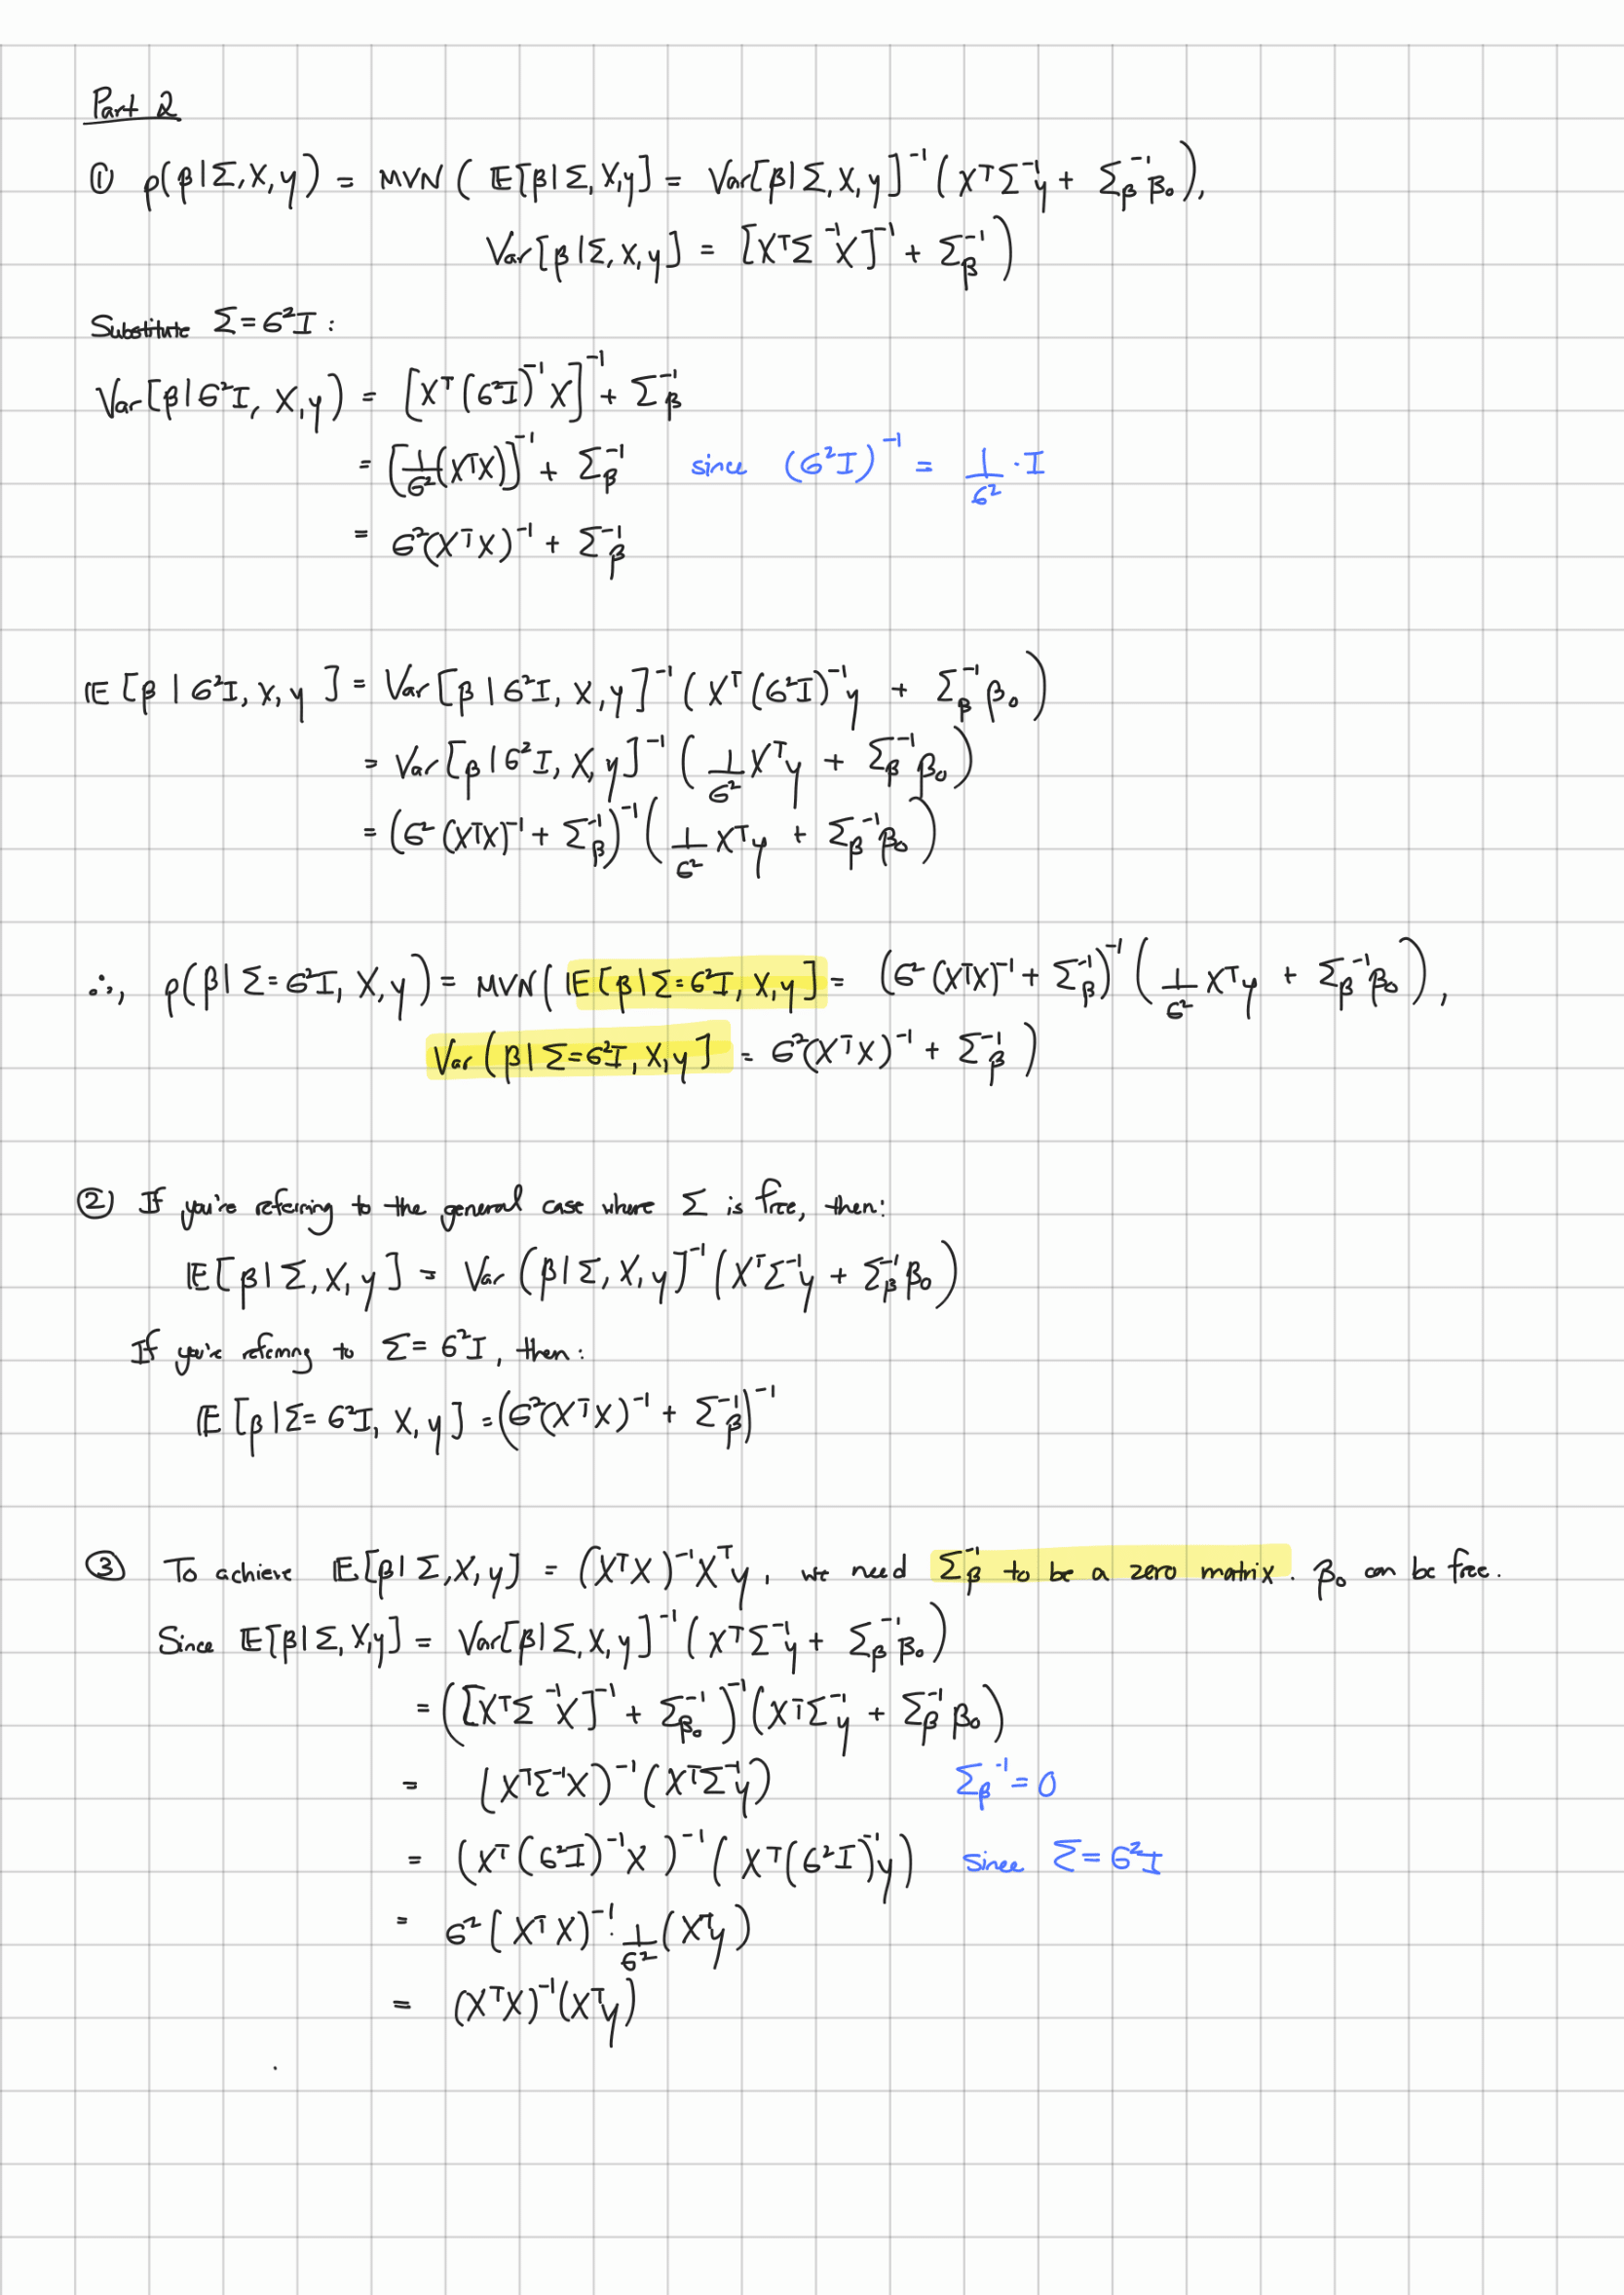 Part 2
① p(β|Σ, X, y) = MVN( E[β|Σ, X, y] = Var[β|Σ, X, y]⁻¹ (XᵀΣ⁻¹y + Σβ⁻¹β₀),
Var[β|Σ, X, y] = [XᵀΣ⁻¹X]⁻¹ + Σβ⁻¹)
Substitute Σ = σ²I :
Var[β|σ²I, X, y) = [Xᵀ(σ²I)⁻¹X]⁻¹ + Σβ⁻¹
= [1/σ² (XᵀX)]⁻¹ + Σβ⁻¹ since (σ²I)⁻¹ = 1/σ² · I
= σ²(XᵀX)⁻¹ + Σβ⁻¹
E[β|σ²I, X, y] = Var[β|σ²I, X, y]⁻¹ (Xᵀ(σ²I)⁻¹y + Σβ⁻¹β₀)
= Var[β|σ²I, X, y]⁻¹ (1/σ² Xᵀy + Σβ⁻¹β₀)
= (σ²(XᵀX)⁻¹ + Σβ⁻¹)⁻¹ (1/σ² Xᵀy + Σβ⁻¹β₀)
∴, p(β|Σ=σ²I, X, y) = MVN( E[β|Σ=σ²I, X, y] = (σ²(XᵀX)⁻¹ + Σβ⁻¹)⁻¹ (1/σ² Xᵀy + Σβ⁻¹β₀),
Var(β|Σ=σ²I, X, y] = σ²(XᵀX)⁻¹ + Σβ⁻¹)
② If you're refering to the general case where Σ is free, then:
E[β|Σ, X, y] = Var(β|Σ, X, y]⁻¹ (XᵀΣ⁻¹y + Σβ⁻¹β₀)
If you're refering to Σ = σ²I, then:
E[β|Σ=σ²I, X, y] = (σ²(XᵀX)⁻¹ + Σβ⁻¹)⁻¹
③ To achieve E[β|Σ, X, y] = (XᵀX)⁻¹Xᵀy, we need Σβ⁻¹ to be a zero matrix. β₀ can be free.
Since E[β|Σ, X, y] = Var[β|Σ, X, y]⁻¹ (XᵀΣ⁻¹y + Σβ⁻¹β₀)
= ([XᵀΣ⁻¹X]⁻¹ + Σβ₀⁻¹)⁻¹ (XᵀΣ⁻¹y + Σβ⁻¹β₀)
= (XᵀΣ⁻¹X)⁻¹ (XᵀΣ⁻¹y) Σβ⁻¹ = 0
= (Xᵀ(σ²I)⁻¹X)⁻¹ (Xᵀ(σ²I)⁻¹y) since Σ = σ²I
= σ²(XᵀX)⁻¹ · 1/σ² (Xᵀy)
= (XᵀX)⁻¹(Xᵀy)